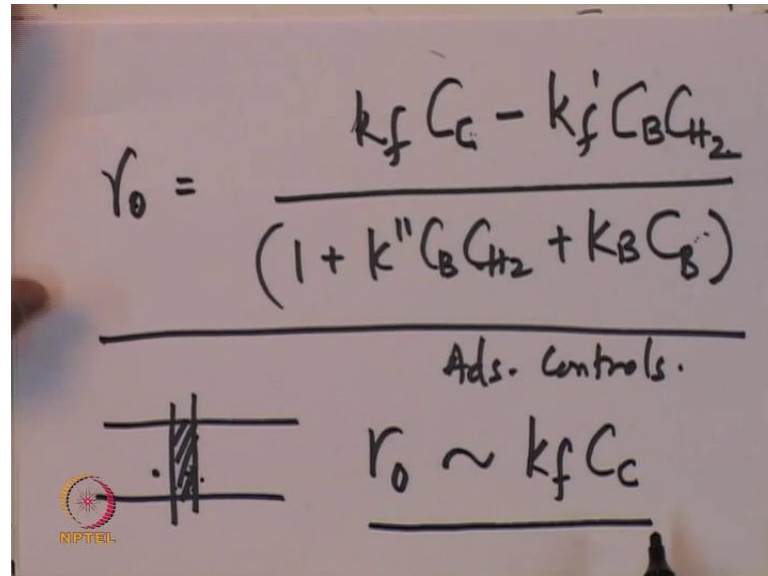 r₀ = (k_f C_C - k_f' C_B C_H₂) / (1 + k'' C_B C_H₂ + K_B C_B)
Ads. Controls.
r₀ ~ k_f C_C
NPTEL